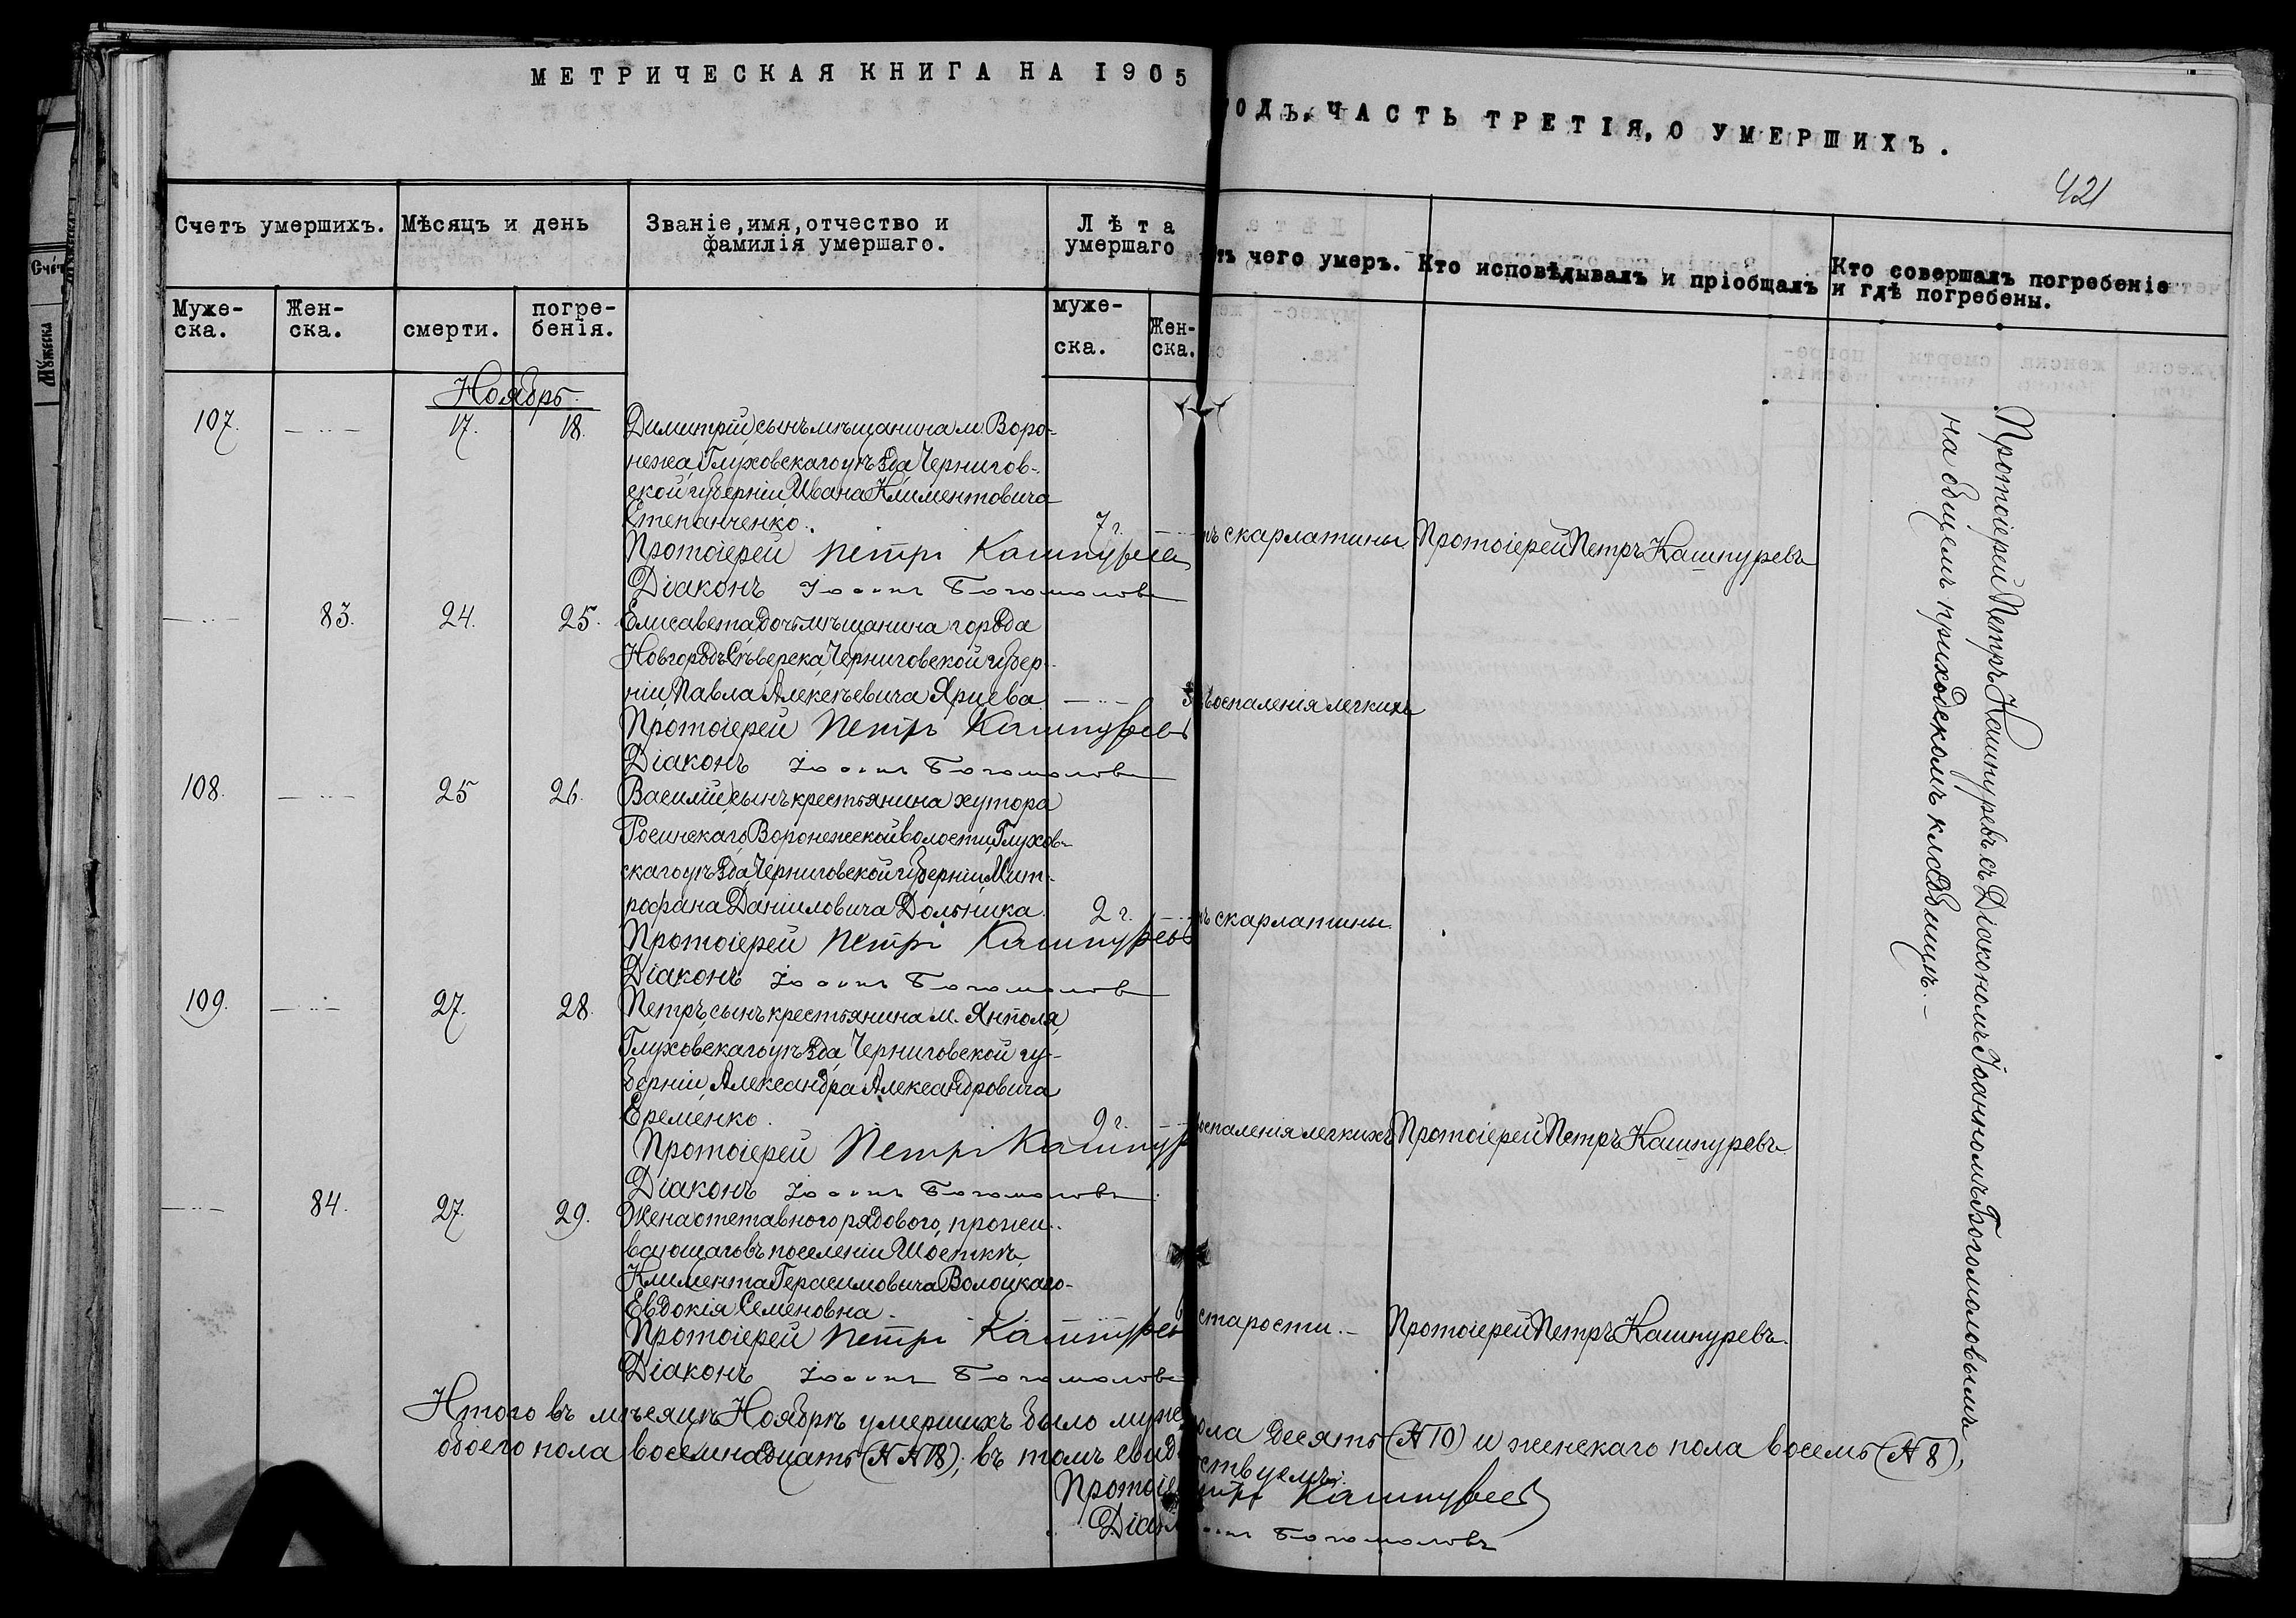 МЕТРИЧЕСКАЯ КНИГА НА 1905
ОДЪ, ЧАСТЬ ТРЕТІЯ, О УМЕРШИХЪ.
421
Счетъ умершихъ.
Мѣсяцъ и день
Званіе, имя, отчество и
фамилія умершаго.
Лѣта
умершаго
чего умеръ.
Кто исповѣдывалъ и пріобщалъ
Кто совершалъ погребеніе
и гдѣ погребены.
Муже-
ска.
Жен-
ска.
смерти.
погре-
бенія.
муже-
ска.
Жен-
ска.
Ноябрь.
107. 17. 18. Димитрій сынъ мѣщанина м. Воро-
нежа, Глуховскаго уѣзда Чернигов-
ской губерніи Ивана Климентовича
Степанченко. 7 г. скарлатины. Протоіерей Петръ Кашпуревъ
Протоіерей Петръ Кашпуревъ
Діаконъ Іоаннъ Богомоловъ
83. 24. 25. Елисавета дочь мѣщанина города
Новгородъ Сѣверска Черниговской губер-
ніи Павла Алексѣевича Ярцева воспаленія легкихъ
Протоіерей Петръ Кашпуревъ
Діаконъ Іоаннъ Богомоловъ
108. 25 26. Василій сынъ крестьянина хутора
Воронежской волости, Глухов-
скаго уѣзда, Черниговской губерніи, Мит-
рофана Даниловича Дольника. 2 г. скарлатины.
Протоіерей Петръ Кашпуревъ
Діаконъ Іоаннъ Богомоловъ
109. 27. 28. Петръ, сынъ крестьянина м. Янполя,
Глуховскаго уѣзда Черниговской гу-
берніи, Александра Александровича
Еременко. 9 г. воспаленія легкихъ Протоіерей Петръ Кашпуревъ
Протоіерей Петръ Кашпур
Діаконъ Іоаннъ Богомоловъ
84. 27. 29. Жена отставного рядового, прожи-
вающаго въ поселеніи Шосткѣ,
Климента Герасимовича Волоцкаго-
Евдокія Семеновна. старости. Протоіерей Петръ Кашпуревъ.
Протоіерей Петръ Кашпуревъ
Діаконъ Іоаннъ Богомоловъ
Протоіерей Петръ Кашпуревъ съ Діакономъ Іоанномъ Богомоловымъ
на общемъ приходскомъ кладбищѣ.
Итого въ мѣсяцѣ Ноябрѣ умершихъ было муже ола десять (№10) и женскаго пола восемь (№8),
обоего пола восемнадцать (№№18); въ томъ свид ствуемъ:
Протоіе Кашпуревъ
Діак Богомоловъ